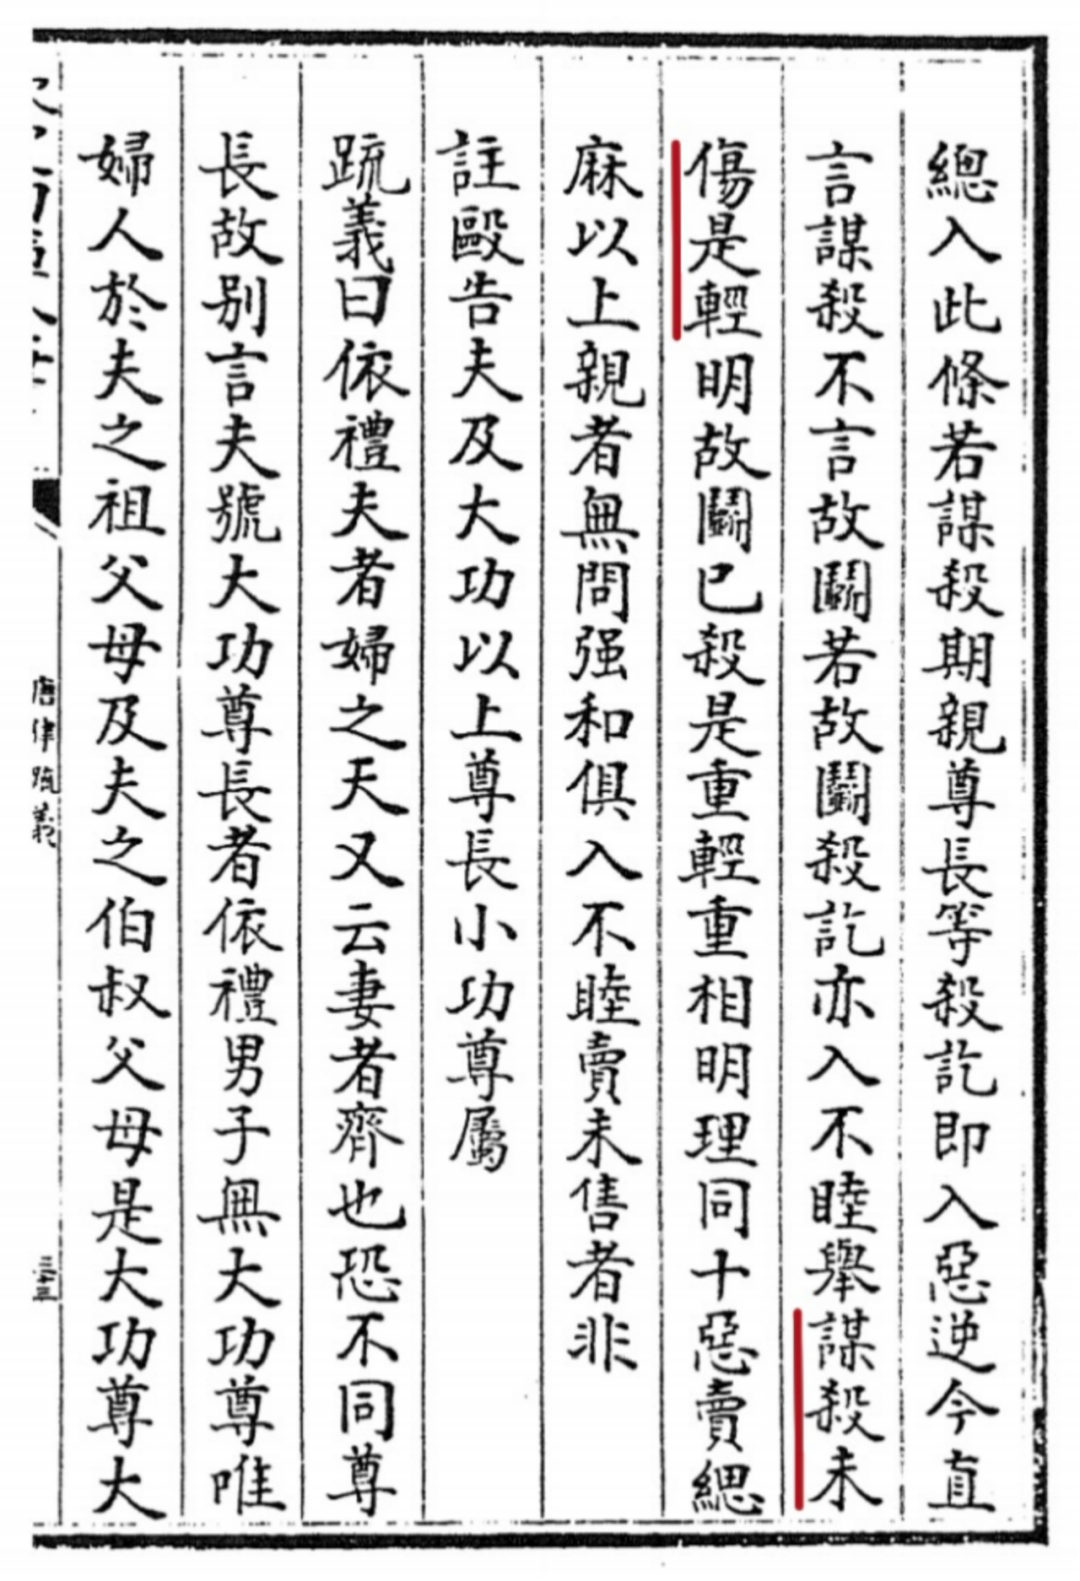 總入此條若謀殺期親尊長等殺訖即入惡逆今直
言謀殺不言故鬬若故鬬殺訖亦入不睦舉謀殺未
傷是輕明故鬬已殺是重輕重相明理同十惡賣緦
麻以上親者無問强和俱入不睦賣未售者非
註毆告夫及大功以上尊長小功尊屬
䟽義曰依禮夫者婦之天又云妻者齊也恐不同尊
長故别言夫號大功尊長者依禮男子無大功尊唯
婦人於夫之祖父母及夫之伯叔父母是大功尊大
唐律疏義